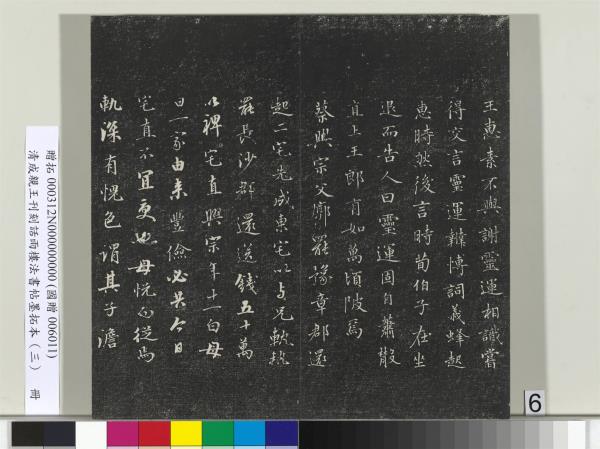 王惠素不與謝靈運相識嘗
得交言靈運辯博詞義蜂起
惠時然後言時荀伯子在坐
退而告人曰靈運固自蕭散
直上王郎有如萬頃陂焉
蔡興宗父廓罷豫章郡還
起二宅先成東宅以與兄軌軌
罷長沙郡還送錢五十萬
以裨宅直興宗年十一白母
曰一家由來豐儉必共今日
宅直不宜受也母悅而從焉
軌深有愧色謂其子澹
贈拓 000312N000000000 (國贈 006011)
清成親王刊刻詒晉樓法書帖墨拓本（三） 冊
6